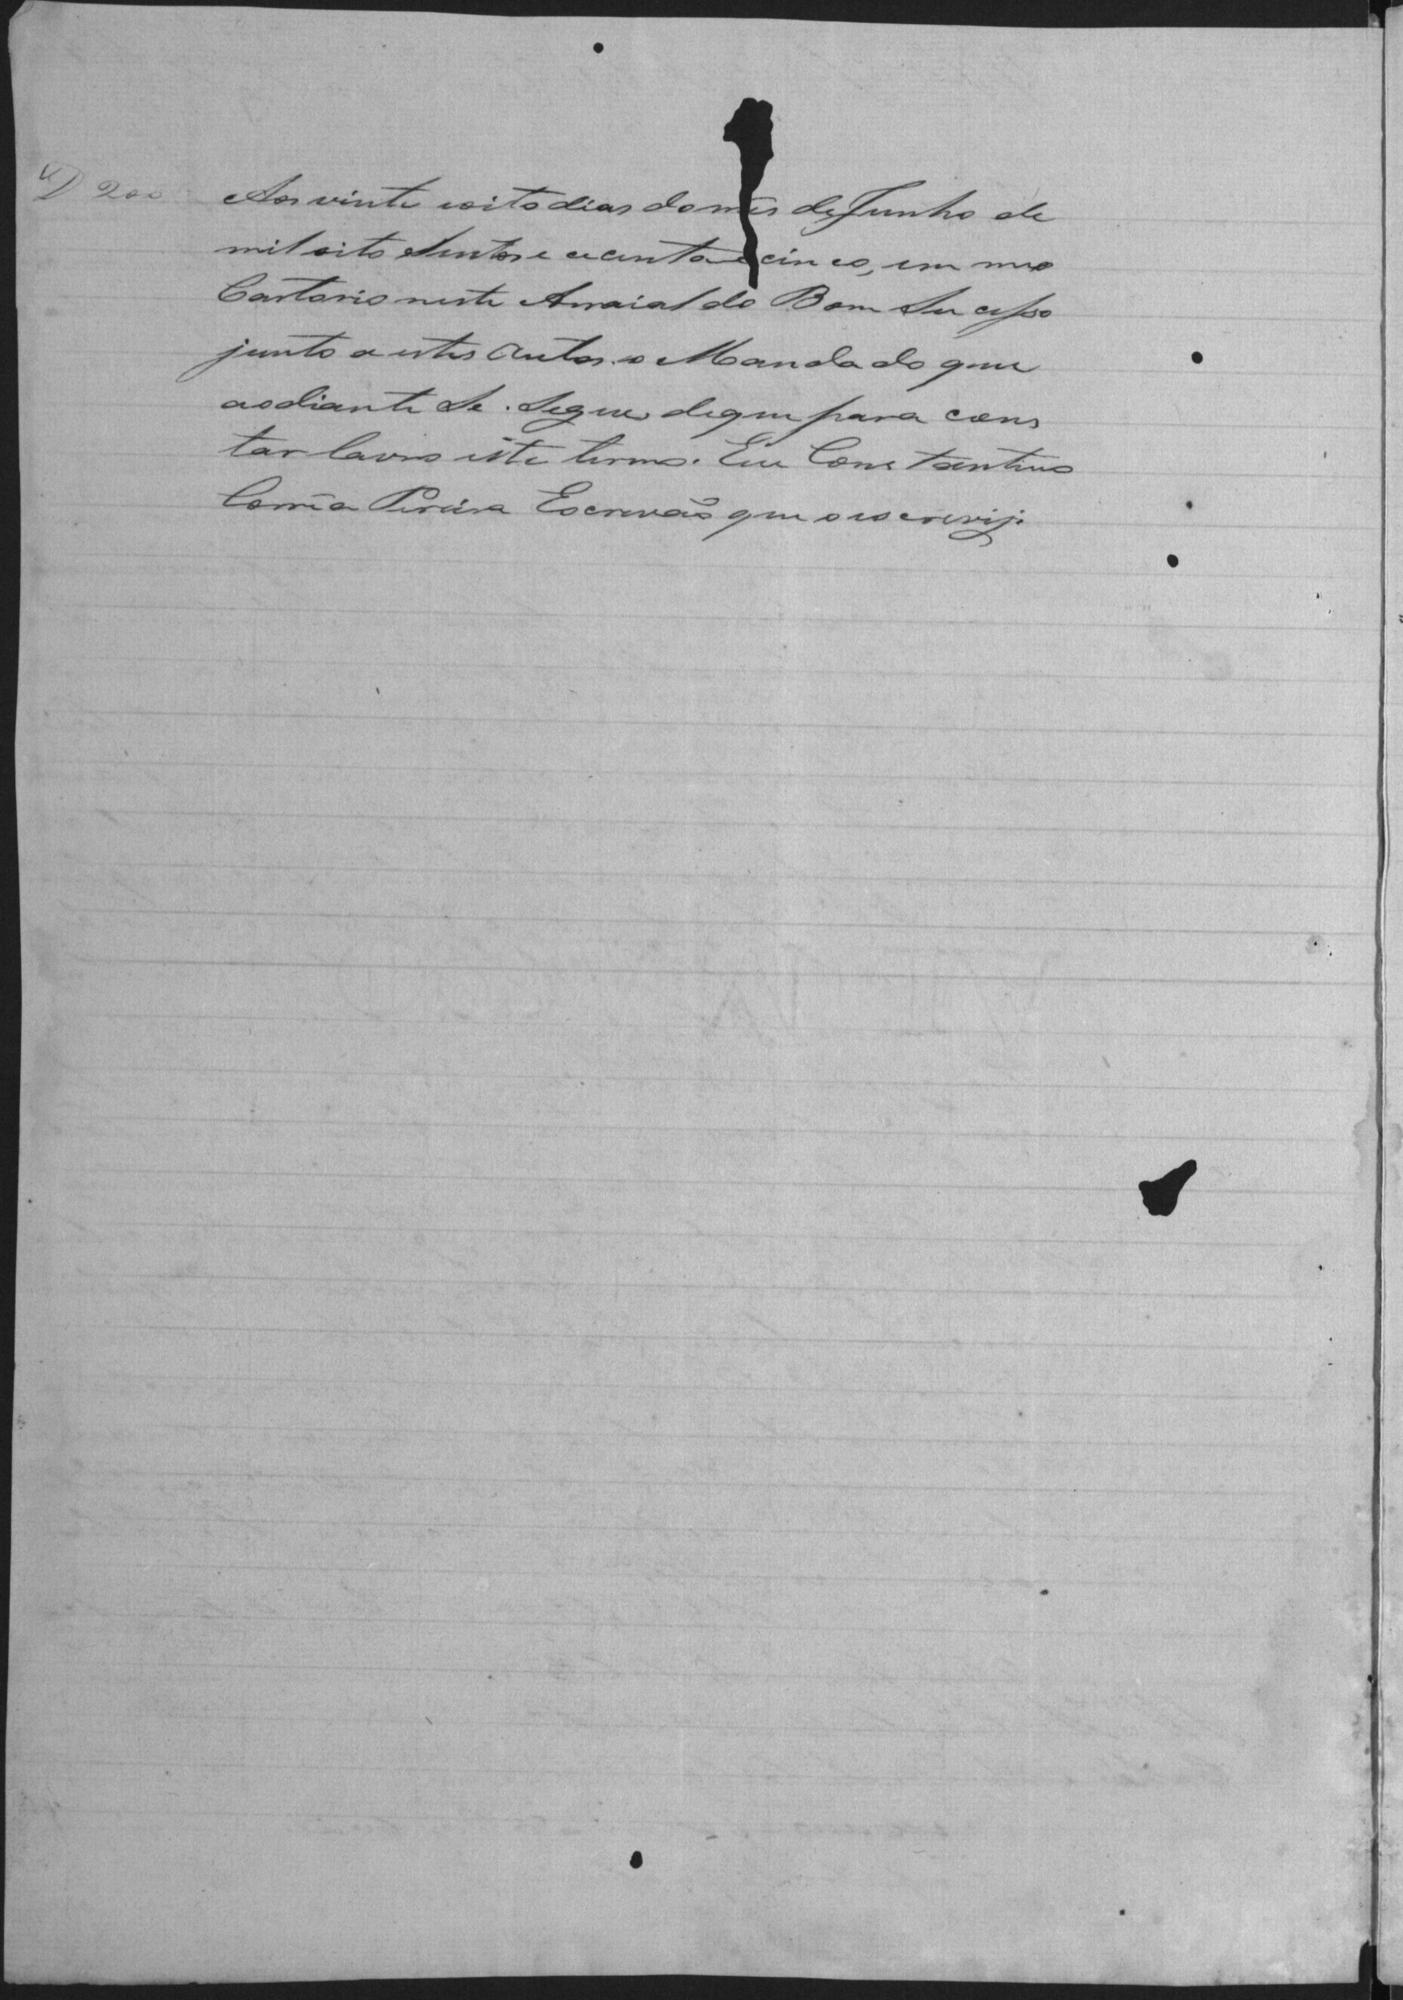 D 200
Aos vinte e oito dias do mes de Junho de
mil oito sentos e oitenta e cinco, em meo
Cartorio neste Arraial do Bom Sucesso
junto a estes Autos o Mandado que
aodiante Se Segue, deque para cons
tar lavro este termo. Eu Constantino
Corrêa Pereira Escrevão que o escrevij.